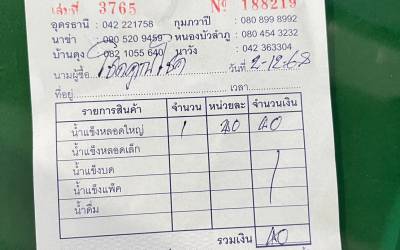 เล่มที่ 3765 No 188219
อุดรธานี : 042 221758 กุมภวาปี : 080 899 8992
นาข่า : 080 520 9459 หนองบัวลำภู : 080 454 3232
บ้านดุง : 082 1055 640 นาวัง : 042 363304
นามผู้ซื้อ วันที่ 2-12-68
ที่อยู่ เวลา
รายการสินค้า จำนวน หน่วยละ จำนวนเงิน
น้ำแข็งหลอดใหญ่ 1 40 40
น้ำแข็งหลอดเล็ก
น้ำแข็งบด
น้ำแข็งแพ็ค
น้ำดื่ม
รวมเงิน 40